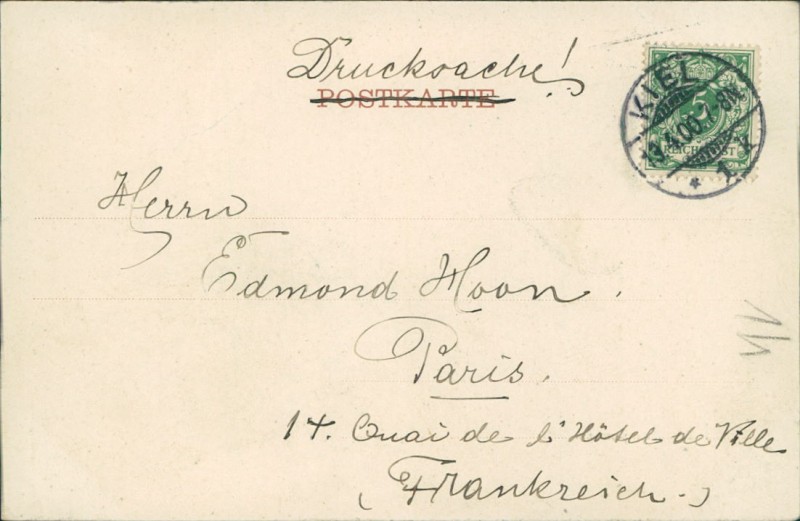 Drucksache!
POSTKARTE
KIEL
REICHSPOST
Herrn
Edmond Hoon.
Paris.
14. Quai de l'Hôtel de Ville
(Frankreich.)